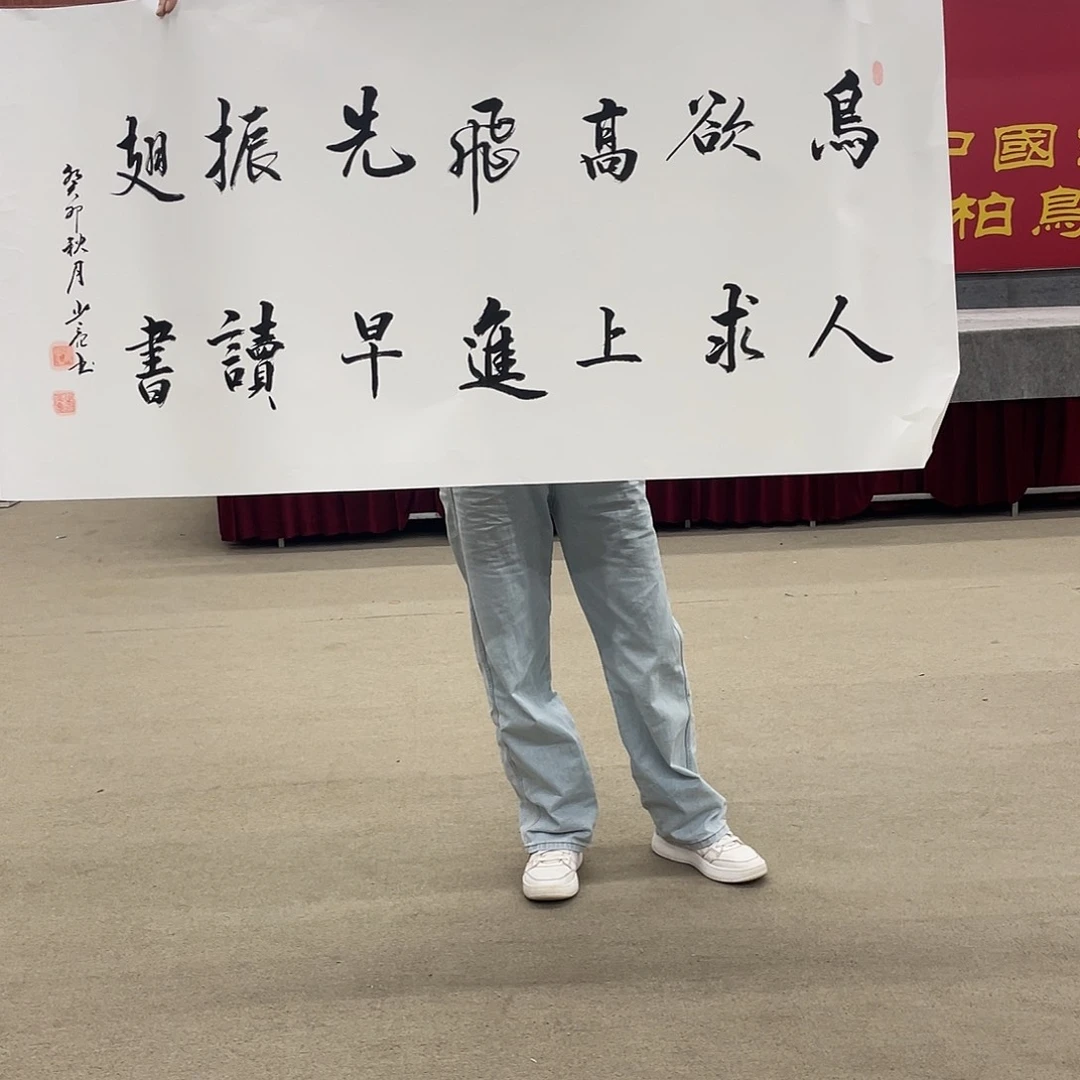 鳥欲高飛先振翅
人求上進早讀書
癸卯秋月
國
柏鳥